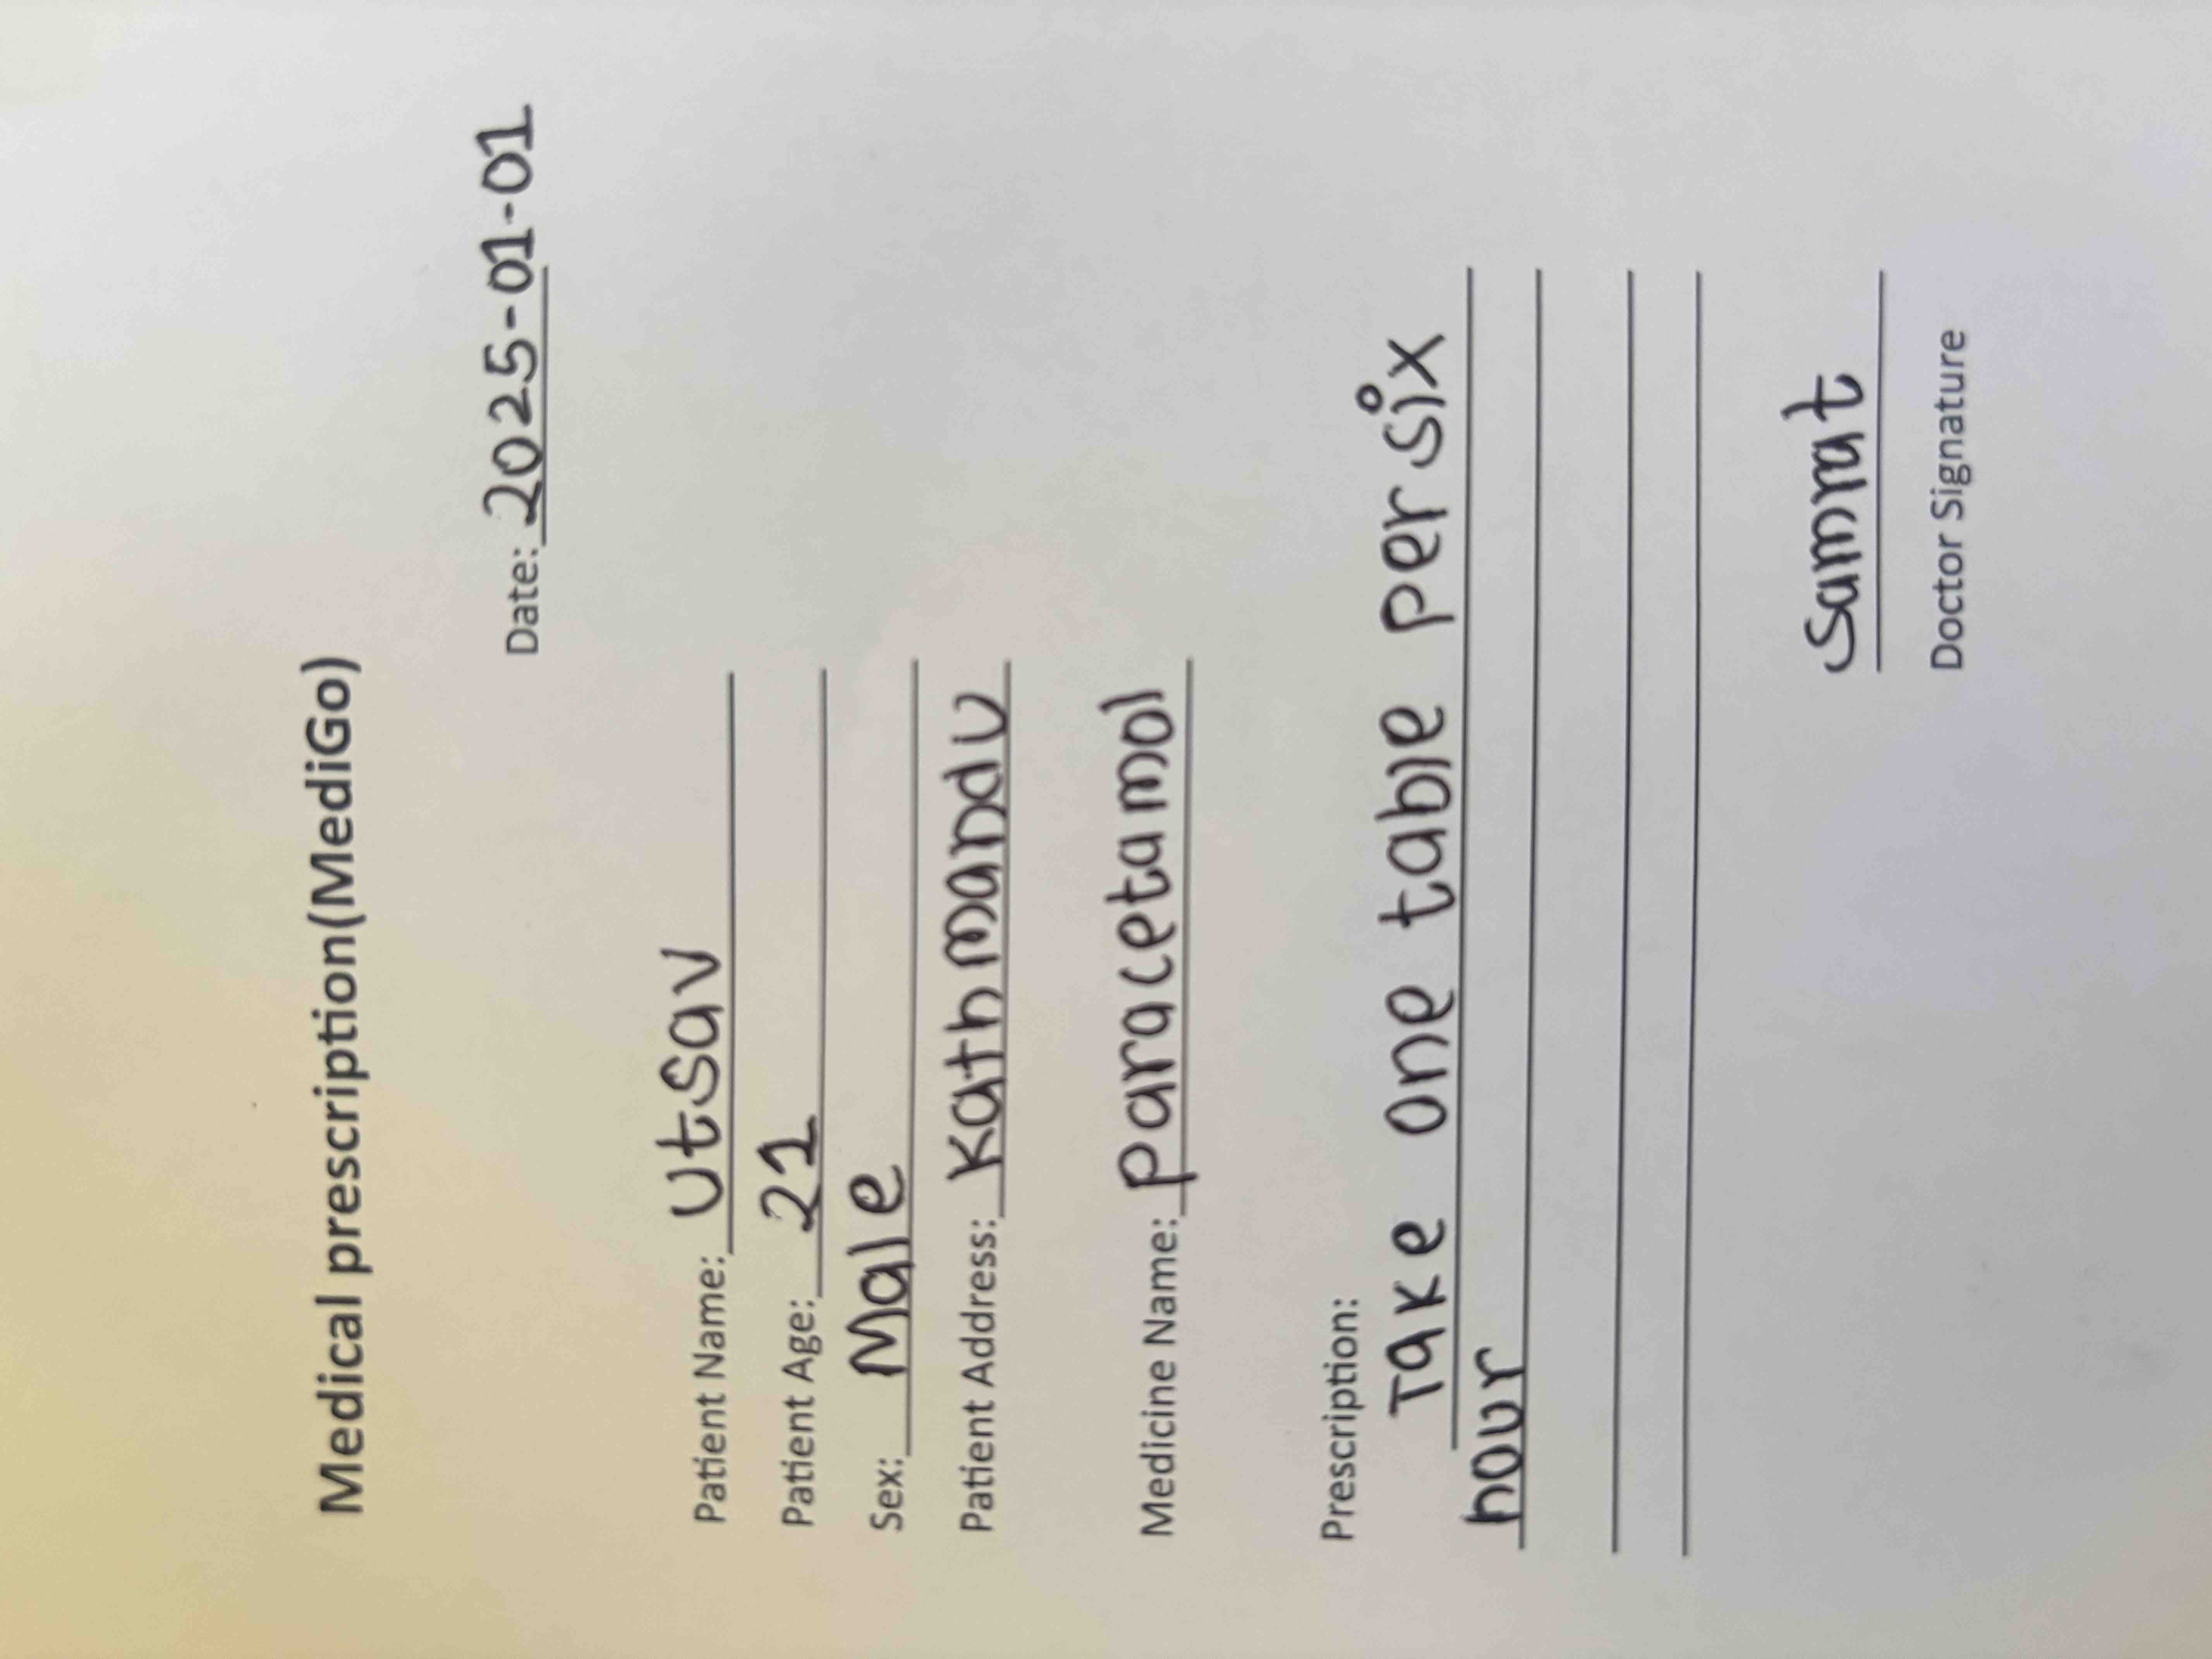 Medical prescription(MediGo)
Date: 2025-01-01
Patient Name: Utsav
Patient Age: 21
Sex: Male
Patient Address: Kathmandu
Medicine Name: paracetamol
Prescription:
Take one table per six
hour
samrat
Doctor Signature